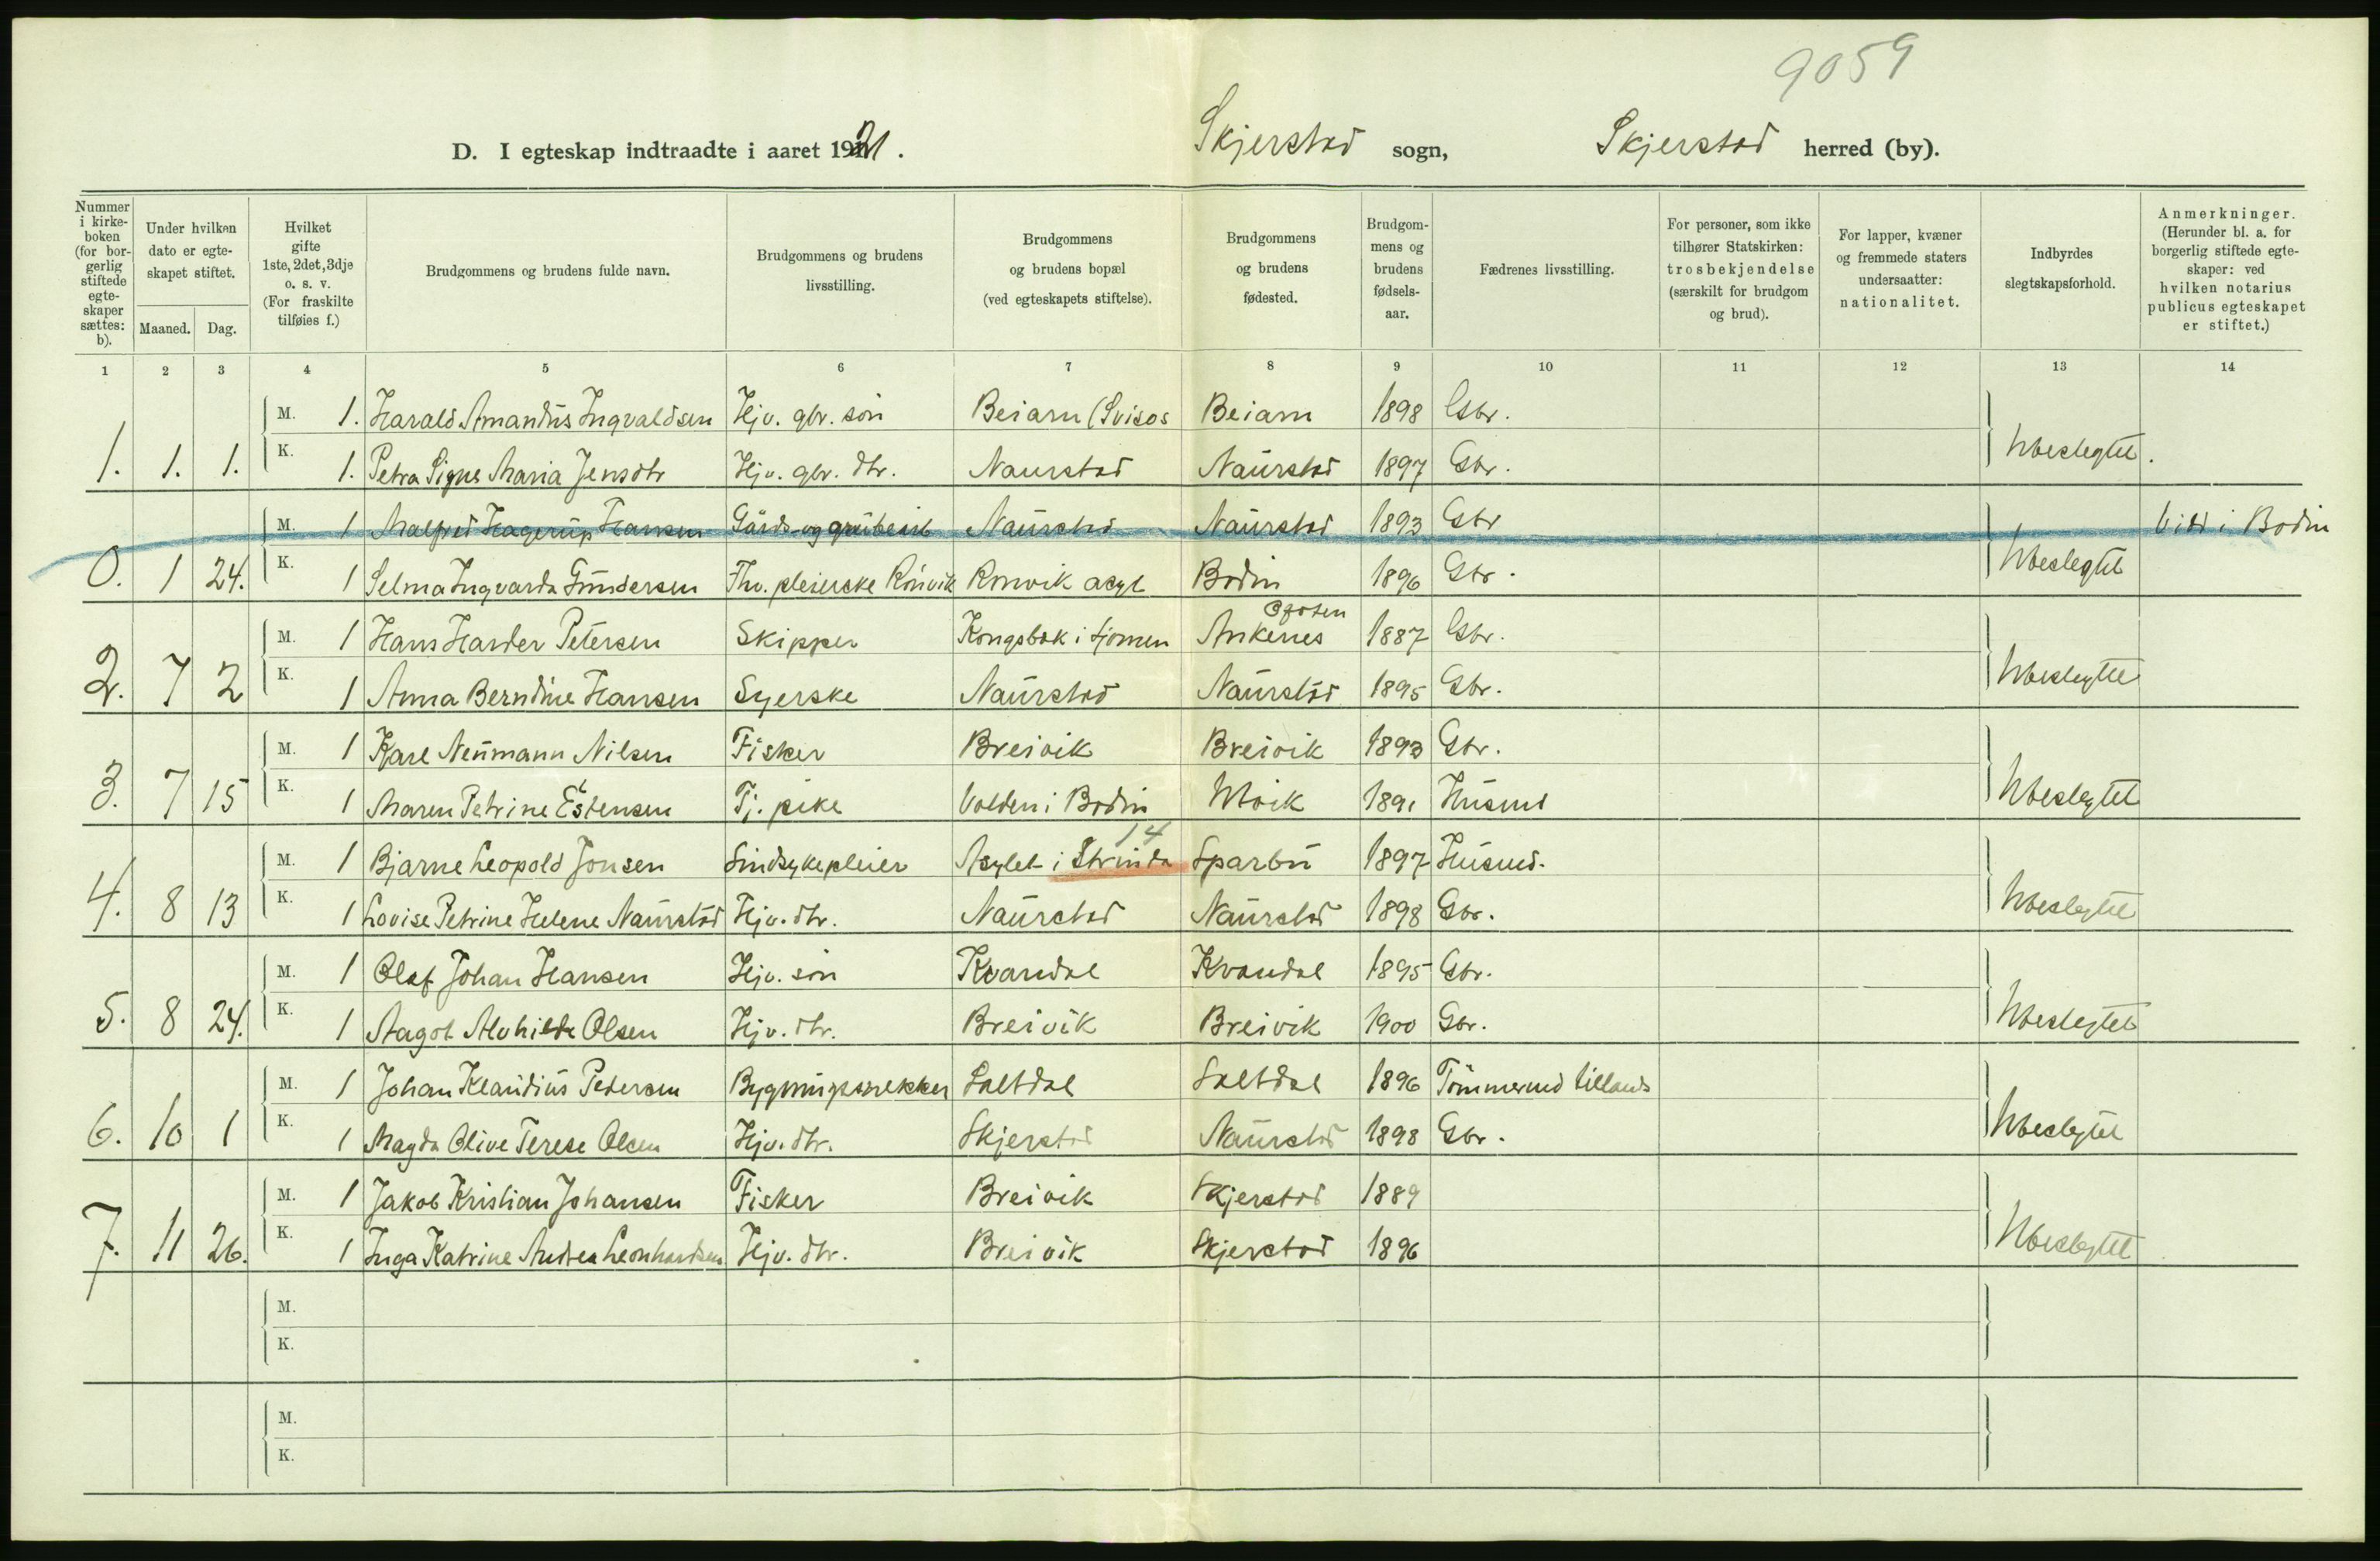 9059
D. I egteskap indtraadte i aaret 1921. Skjerstad sogn, Skjerstad herred (by).
Nummer i kirke-boken (for bor-gerlig stiftede egte-skaper sættes: b). Under hvilken dato er egte-skapet stiftet. Maaned. Dag. Hvilket gifte 1ste, 2det, 3dje o. s. v. (For fraskilte tilføies f.) Brudgommens og brudens fulde navn. Brudgommens og brudens livsstilling. Brudgommens og brudens bopæl (ved egteskapets stiftelse). Brudgommens og brudens fødested. Brudgom-mens og brudens fødsels-aar. Fædrenes livsstilling. For personer, som ikke tilhører Statskirken: trosbekjendelse (særskilt for brudgom og brud). For lapper, kvæner og fremmede staters undersaatter: nationalitet. Indbyrdes slegtskapsforhold. Anmerkninger. (Herunder bl. a. for borgerlig stiftede egte-skaper: ved hvilken notarius publicus egteskapet er stiftet.)
1 2 3 4 5 6 7 8 9 10 11 12 13 14
M. 1. Harald Amandus Ingvaldsen Hjv. gbr. søn Beiarn (Svisos Beiarn 1898 Gbr.
1. 1. 1. K. 1. Petra Signe Maria Jensdtr Hjv. gbr. dtr. Naurstad Naurstad 1897 Gbr. Ubeslegtet.
M. 1 Malfred Hagerup Hansen Gårds- og grubearb Naurstad Naurstad 1893 Gbr Viet i Bodin
0. 1 24. K. 1 Selma Ingvarda Gundersen Fhv. pleierske Rönvik Rönvik asyl Bodin 1896 Gbr. Ubeslegtet
M. 1 Hans Harder Petersen Skipper Kongsbak i Tjomen Ankenes Ofoten 1887 Gbr.
2. 7 2 K. 1 Anna Berndine Hansen Syerske Naurstad Naurstad 1895 Gbr. Ubeslegtet
M. 1 Karl Neumann Nilsen Fisker Breivik Breivik 1893 Gbr.
3. 7 15 K. 1 Maren Petrine Estensen Tj. pike Valden i Bodin Utvik 1891 Husmd Ubeslegtet
14
M. 1 Bjarne Leopold Jonsen Sindsykepleier Asylet i Strinda Sparbu 1897 Husmd.
4. 8 13 K. 1 Lovise Petrine Helene Naurstad Hjv. dtr. Naurstad Naurstad 1898 Gbr. Ubeslegtet
M. 1 Olaf Johan Hansen Hjv. søn Kvandal Kvandal 1895 Gbr.
5. 8 24. K. 1 Aagot Alvhilda Olsen Hjv. dtr. Breivik Breivik 1900 Gbr. Ubeslegtet
M. 1 Johan Klaudius Pedersen Bygningssnekker Saltdal Saltdal 1896 Tömmermd tillands
6. 10 1 K. 1 Magda Olive Terese Olsen Hjv. dtr. Skjerstad Naurstad 1898 Gbr. Ubeslegtet
M. 1 Jakob Kristian Johansen Fisker Breivik Skjerstad 1889
7. 11 26. K. 1 Inga Katrine Andrea Leonhardsen Hjv. dtr. Breivik Skjerstad 1896 Ubeslegtet
M.
K.
M.
K.